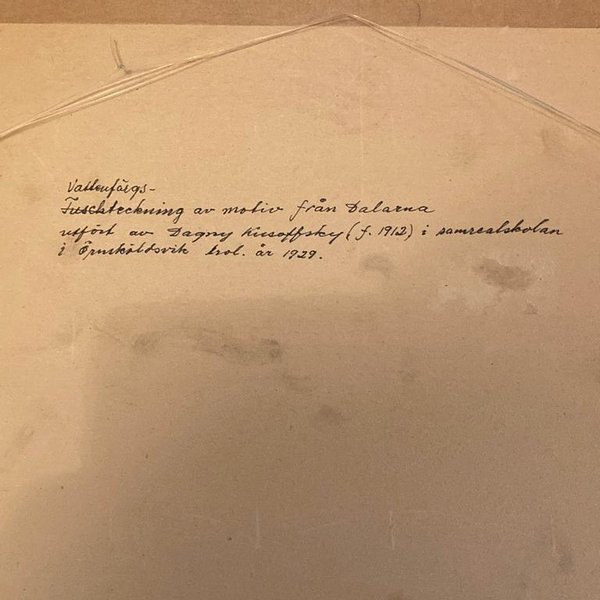 Vattenfärgs-
Tuschteckning av motiv från Dalarna
utfört av Dagny (f. 1912) i samrealskolan
i Örnsköldsvik år 1929.